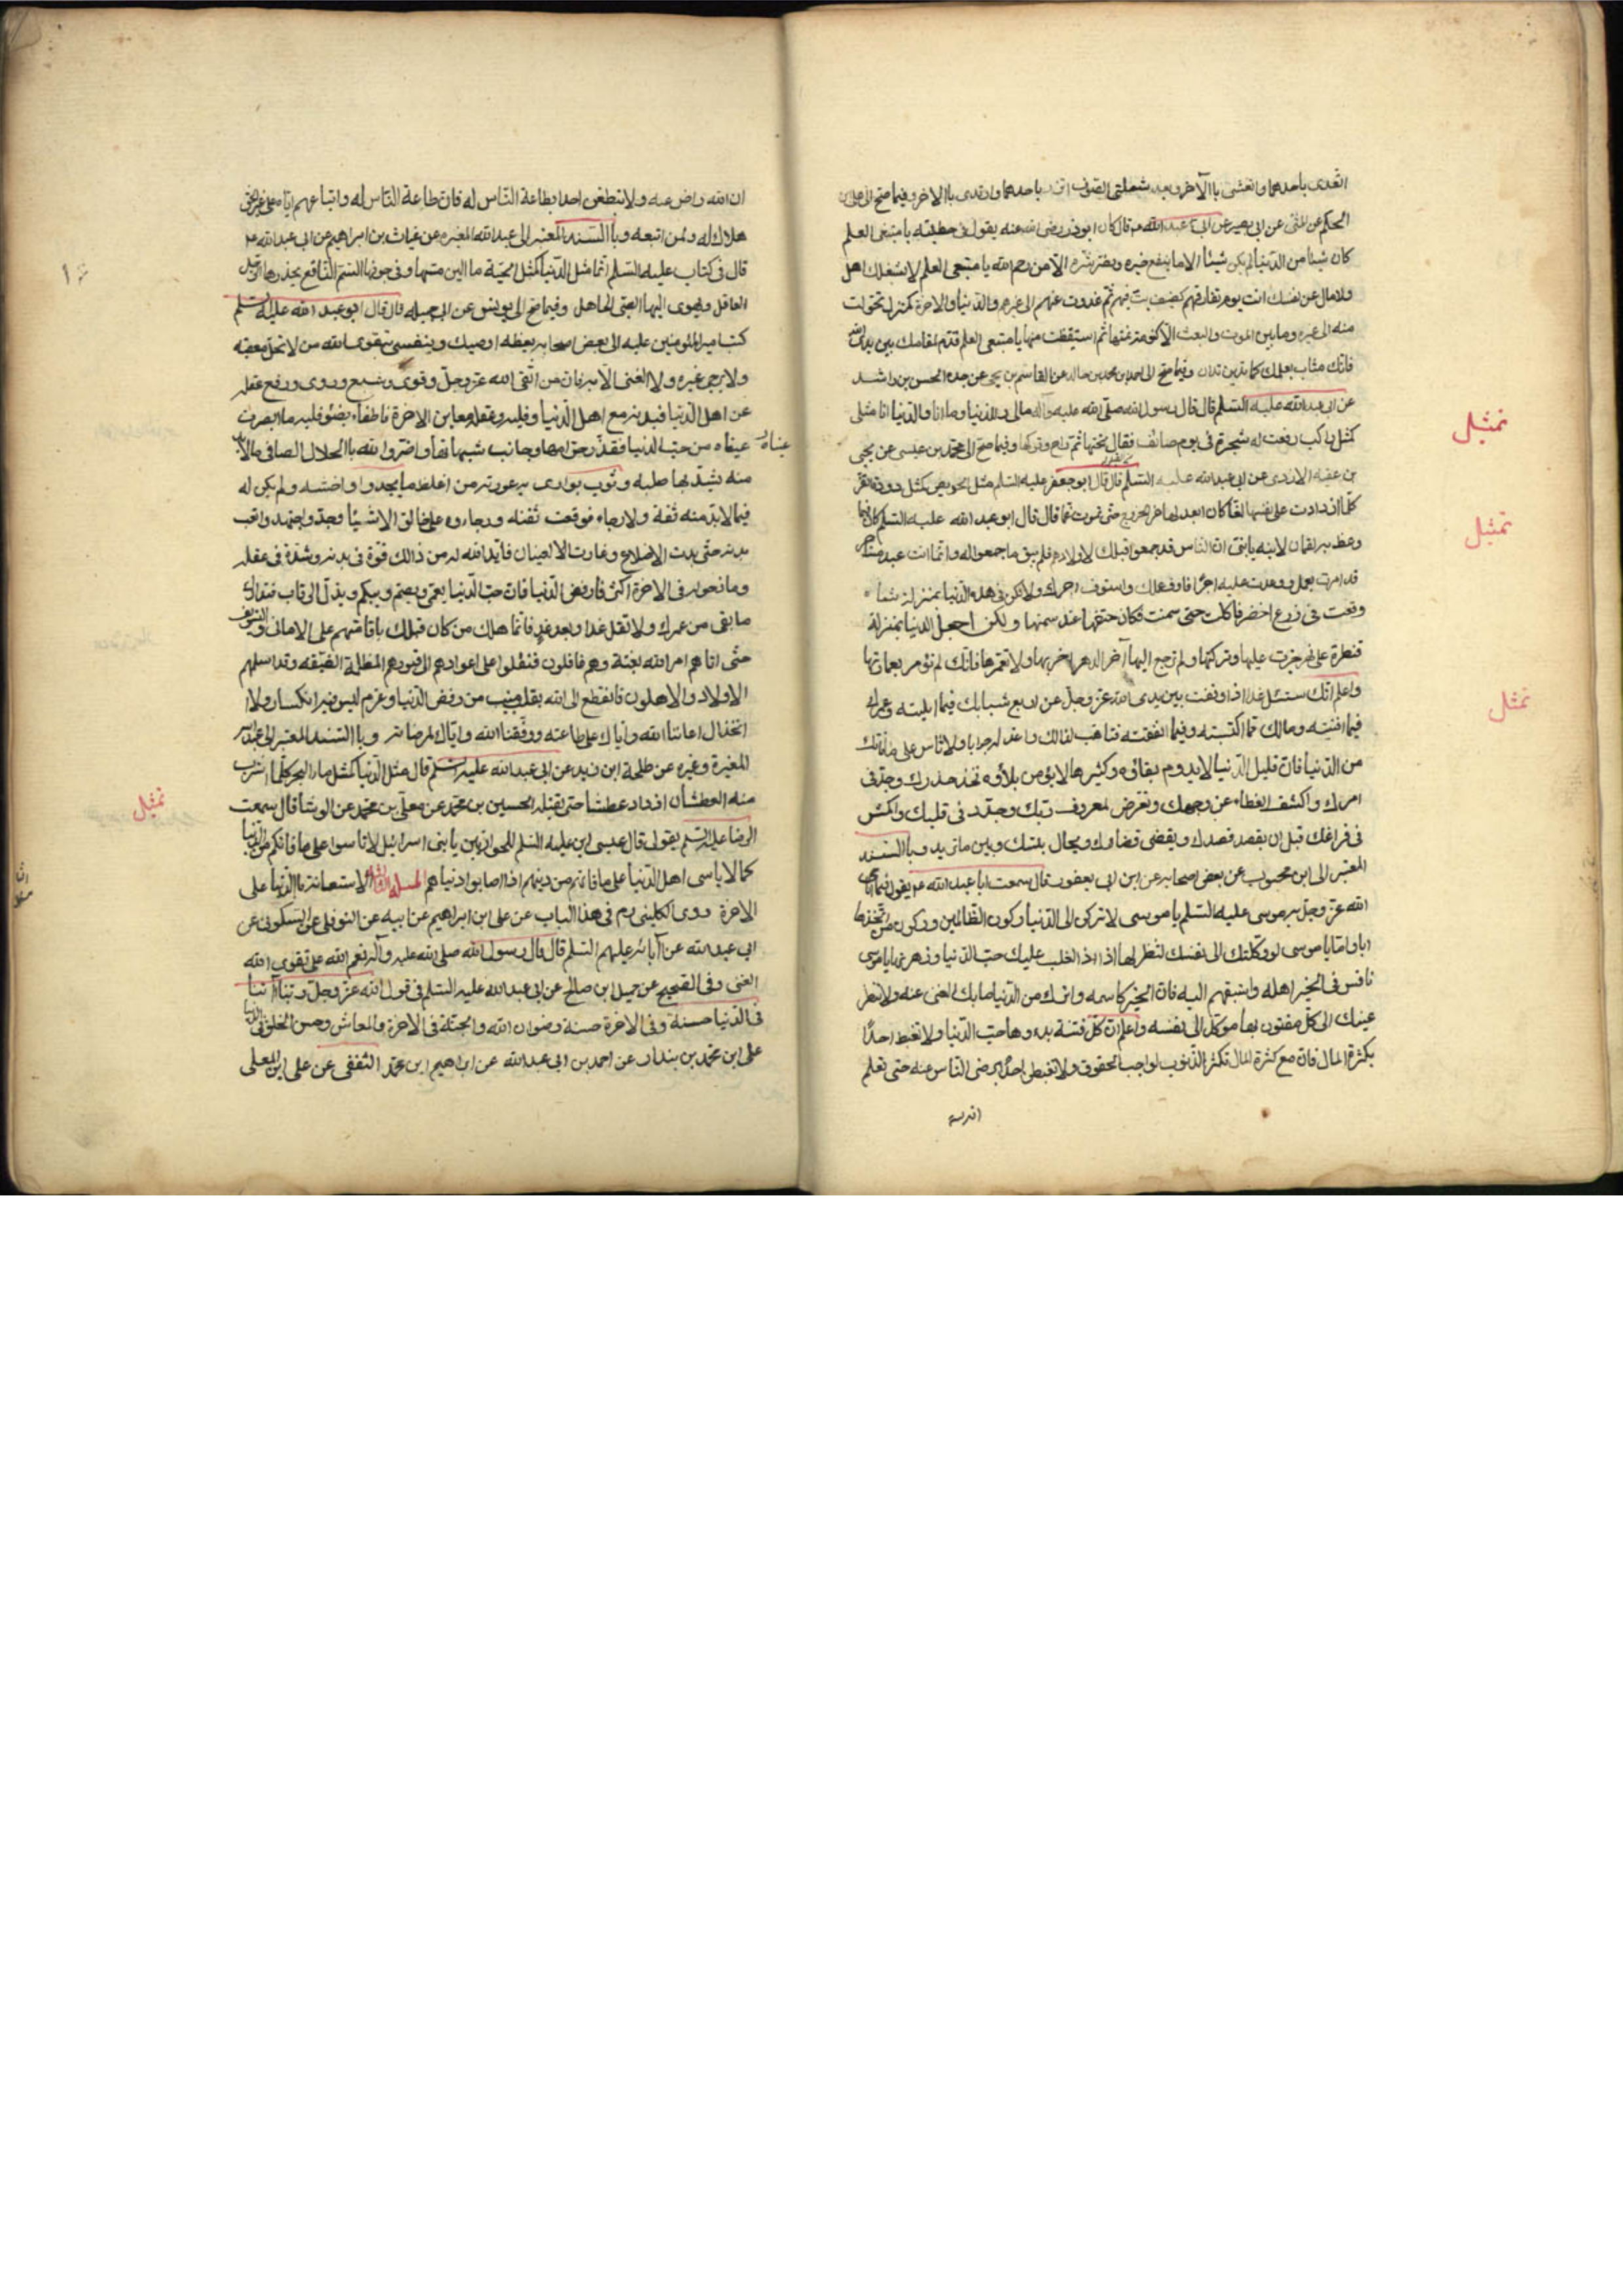 اتغدى باحدهما واتعشى باالآخر وبعد شملتى الصوف اتزر باحدهما وارتدى باالاخر وفيما صح الى على بن
الحكم عن المثنى عن ابى بصير عن ابى عبد الله ع قال كان ابوذر رضى الله عنه يقول فى خطبته يا مبتغى العلم
كان شيئا من الدنيا لم يكن شيئا الا ما ينفع خيره ويضر شره الا من رحم الله يا مبتغى العلم لا يشغلك اهل
ولا مال عن نفسك انت يوم تفارقهم كضيف بت فيهم ثم غدوت عنهم الى غيرهم والدنيا والاخرة كمنزل تحولت
منه الى غيره وما بين الموت والبعث الا كنومة نمتها ثم استيقظت منها يا مبتغى العلم قدم لمقامك بين يدى الله
فانك مثاب بعملك كما تدين تدان وفيما صح الى احمد بن محمد بن خالد عن القاسم بن يحيى عن جده الحسن بن راشد
عن ابى عبد الله عليه السلم قال قال رسول الله صلى الله عليه وآله مالى وللدنيا وما انا والدنيا انا مثلى
كمثل راكب رفعت له شجرة فى يوم صائف فقال تحتها ثم راح وتركها وفيما صح الى محمد بن عيسى عن يحيى
بن عقبه الازدى عن ابى عبد الله عليه السلم قال قال ابو جعفر عليه السلم مثل الحريص كمثل دودة القز
كلما ازدادت على نفسها لفا كان ابعد لها من الخروج حتى تموت غما قال قال ابو عبد الله عليه السلم كان فيما
وعظ به لقمان لابنه يا بنى ان الناس قد جمعوا قبلك لاولادهم فلم يبق ما جمعوا له وانما انت عبد مستأجر
قد امرت بعمل ووعدت عليه اجرا فاوف عملك واستوف اجرك ولا تكن فى هذه الدنيا بمنزلة شاة
وقعت فى زرع اخضر فاكلت حتى سمنت فكان حتفها عند سمنها ولكن اجعل الدنيا بمنزلة
قنطرة على نهر جزت عليها وتركتها ولم ترجع اليها آخر الدهر اخربها ولا تعمرها فانك لم تؤمر بعمارتها
واعلم انك ستسئل غدا اذا وقفت بين يدى الله عز وجل عن اربع شبابك فيما ابليته وعمرك
فيما افنيته ومالك مما اكتسبته وفيما انفقته فتاهب لذالك واعد له جوابا ولا تاس على ما فاتك
من الدنيا فان قليل الدنيا لا يدوم بقائه وكثيرها لا يؤمن بلاؤه فخذ حذرك وجد فى
امرك واكشف الغطاء عن وجهك وتعرض لمعروف ربك وجدد فى قلبك واكمش
فى فراغك قبل ان يقصد قصدك ويقضى قضاؤك ويحال بينك وبين ما تريد وباالسند
المعتبر الى ابن محبوب عن بعض اصحابه عن ابن ابى يعفور قال سمعت ابا عبد الله ع يقول فيما ناجى
الله عز وجل به موسى عليه السلم يا موسى لا تركن الى الدنيا ركون الظالمين وركون من اتخذها
ابا واما يا موسى لو وكلتك الى نفسك لتنظر لها اذا لغلب عليك حب الدنيا وزهرتها يا موسى
نافس فى الخير اهله واستبقهم اليه فان الخير كاسمه واترك من الدنيا ما بك الغنى عنه ولا تنظر
عينك الى كل مفتون بها موكل الى نفسه واعلم ان كل فتنة بدءوها حب الدنيا ولا تغبط احدا
بكثرة المال فان مع كثرة المال تكثر الذنوب لواجب الحقوق ولا تغبطن احدا برضى الناس عنه حتى تعلم
تمثيل
تمثيل
تمثيل
ان الله راض عنه ولا تغبطن احدا بطاعة الناس له فان طاعة الناس له واتباعهم اياه على غير الحق
هلاك له ولمن اتبعه وباالسند المعتبر الى عبد الله المغيره عن غياث بن ابراهيم عن ابى عبد الله ع
قال فى كتاب عليه السلم انما مثل الدنيا كمثل الحية ما الين مسها وفى جوفها السم الناقع يحذرها الرجل
العاقل ويهوى اليها الصبى الجاهل وفيما صح الى يونس عن ابى جميله قال قال ابو عبد الله عليه السلم
كتب امير المؤمنين عليه الى بعض اصحابه يعظه اوصيك ونفسى بتقوى الله من لا تحل معصيه
ولا يرجى غيره ولا الغنى الا به فان من اتقى الله عز وجل وقوى وشبع وروى ورفع عقله
عن اهل الدنيا فبدنه مع اهل الدنيا وقلبه وعقله معاين الاخرة فاطفاء بضوء قلبه ما ابصرت
عيناه من حب الدنيا فقذر حرامها وجانب شبهاتها واضر والله باالحلال الصافى الا مالا بد
منه يشد بها صلبه وثوب يوارى به عورته من اغلظ ما يجدوا واخشنه ولم يكن له
فيما لا بد منه ثقة ولا رجاء فوقعت ثقته ورجاوه على خالق الاشيئا فجد واجتهد واتعب
بدنه حتى بدت الاضلاع وغارت الالعينان فابد الله له من ذالك قوة فى بدنه وشدة فى عقله
وما ذخر له فى الاخرة اكثر فارفض الدنيا فان حب الدنيا يعمى ويصم ويبكم ويذل الرقاب فتدارك
ما بقى من عمرك ولا تقل غدا وبعد غد فانما هلك من كان قبلك باقامتهم على الامانى والتسويف
حتى اتاهم امر الله بغتة وهم غافلون فنقلوا على اعوادهم الى قبورهم المظلمة الضيقه وقد اسلمهم
الاولاد والاهلون فانقطع الى الله بقلب منيب من رفض الدنيا وعزم ليس فيه انكسار ولا
انخذال اعاننا الله واياك على طاعته ووفقنا الله واياك لمرضاته وباالسند المعتبر الى عبد الله
المغيرة وغيره عن طلحة ابن زيد عن ابى عبد الله عليه السلم قال مثل الدنيا كمثل ماء البحر كلما اشرب
منه العطشان ازداد عطشا حتى يقتله الحسين بن محمد عن معلى بن محمد عن الوشا قال سمعت
الرضا عليه السلم يقول قال عيسى ابن عليه السلم للحواريين يا بنى اسرائيل لا تاسوا على ما فاتكم من الدنيا
كما لا ياسى اهل الدنيا على ما فاتهم من دينهم اذا اصابوا دنياهم المسئلة الاستعانة باالدنيا على
الاخرة روى الكلينى رم فى هذا الباب عن على ابن ابراهيم عن ابيه عن النوفلى عن السكونى عن
ابى عبد الله عن آبائه عليهم السلم قال قال رسول الله صلى الله عليه وآله نعم الله على تقوى الله
الغنى وفى الصحيح عن جميل ابن صالح عن ابى عبد الله عليه السلم فى قول الله عز وجل ربنا آتنا
فى الدنيا حسنة وفى الاخرة حسنة رضوان الله والجنة فى الاخرة والمعاش وحسن الخلق فى الدنيا
على ابن محمد بن بندار عن احمد بن ابى عبد الله عن ابراهيم ابن محمد الثقفى عن على ابن المعلى
عيناه
تمثيل